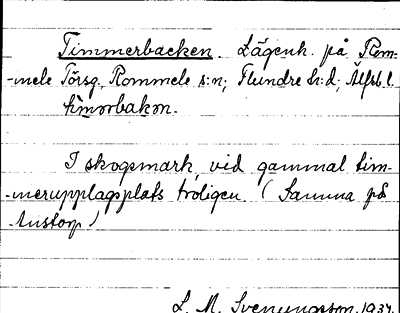 Timmerbacken. Lägenh. på Rom-
-mele Törsg, Rommele s:n; Flundre h:d; Älfsb l.
timorbakon.
I skogsmark, vid gammal tim-
-merupplagsplats troligen (Samma på
-Anstorp)
L. M. Svenungsson. 1937.